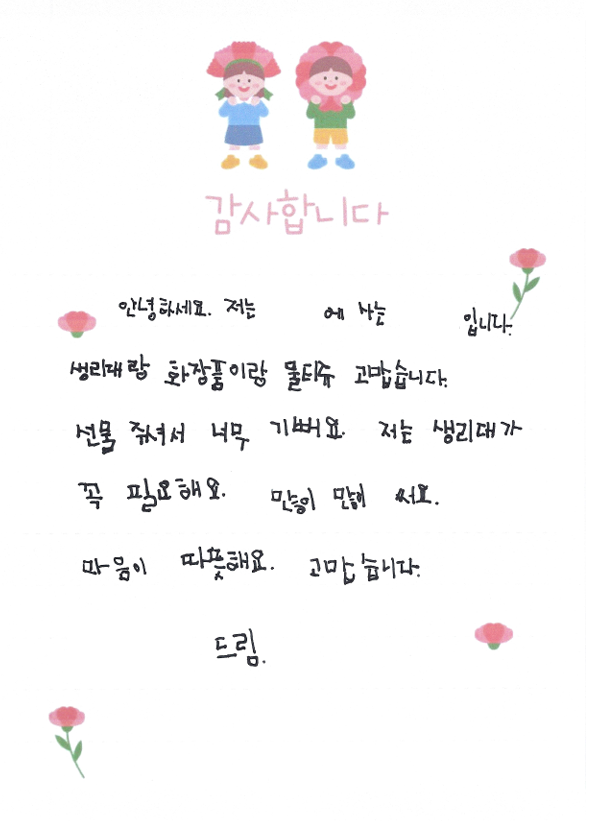 감사합니다
안녕하세요. 저는 에 사는 입니다.
생리대랑 화장품이랑 물티슈 고맙습니다.
선물 줘서 너무 기뻐요. 저는 생리대가
꼭 필요해요. 많이 많이 써요.
마음이 따뜻해요. 고맙습니다.
드림.